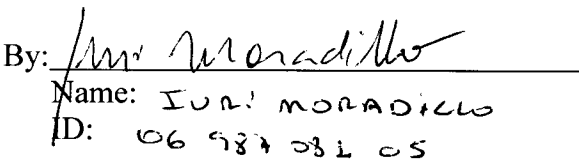 By: Iuri Moradillo
Name: IURI MORADILLO
ID: 06 987 081 05